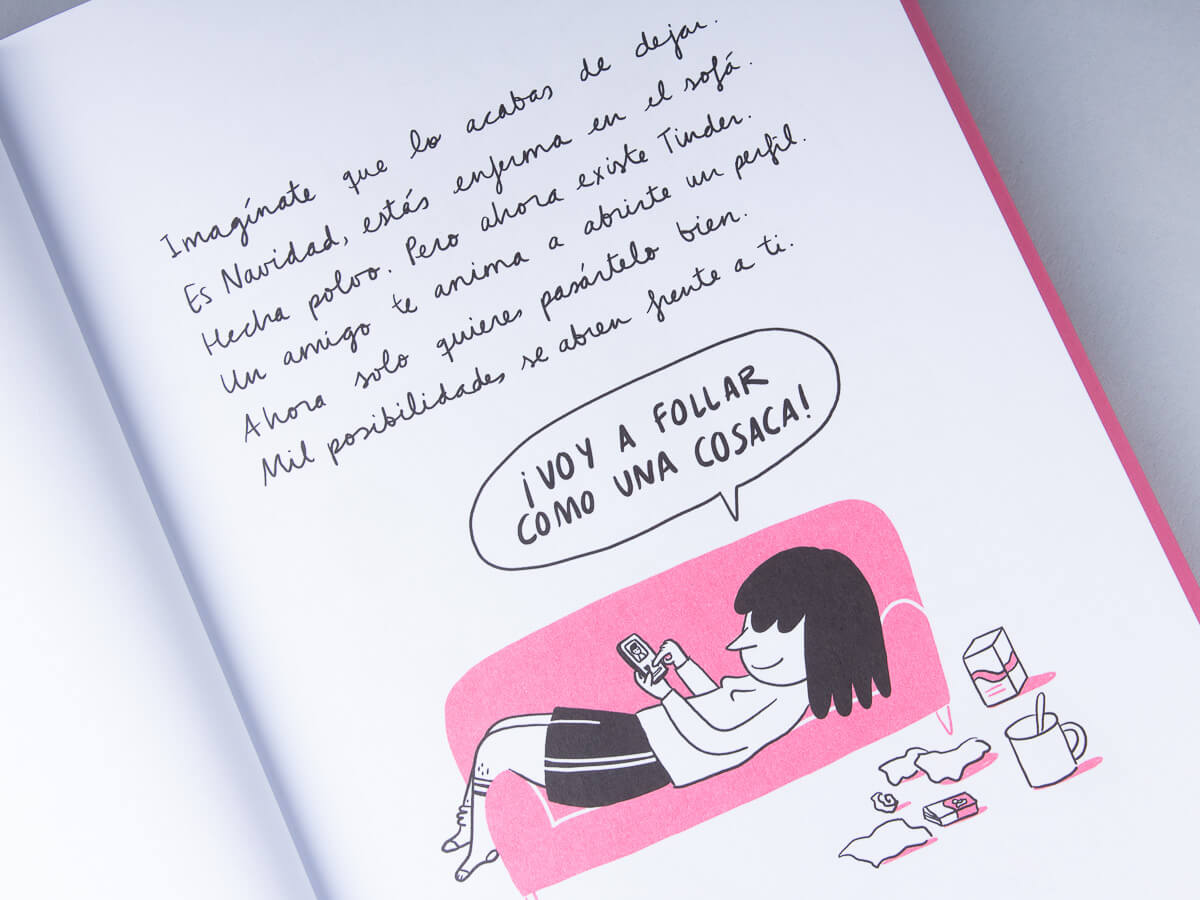 Imagínate que lo acabas de dejar.
Es Navidad, estás enferma en el sofá.
Hecha polvo. Pero ahora existe Tinder.
Un amigo te anima a abrirte un perfil.
Ahora solo quieres pasártelo bien.
Mil posibilidades se abren frente a ti.
¡VOY A FOLLAR
COMO UNA COSACA!